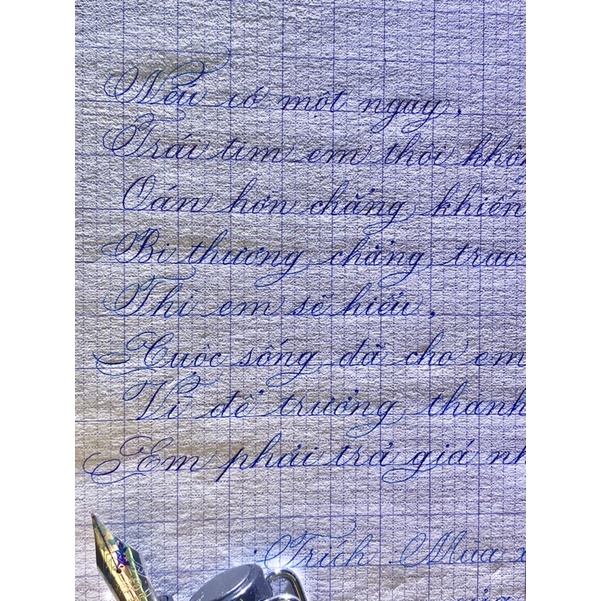 Nếu có một ngày,
Trái tim em thôi khôn
Oán hờn chẳng khiến
Bi thương chẳng trao
Thì em sẽ hiểu,
Cuộc sống đã cho em
Vì để trưởng thanh
Em phải trả giá nh
Trích Mùa x